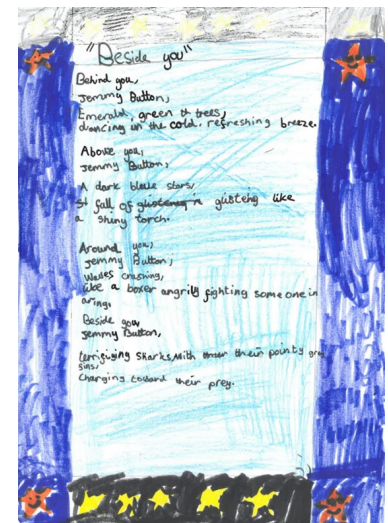 "Beside you"
Behind you,
Jemmy Button,
Emerald, green trees,
dancing in the cold, refreshing breeze.
Above you,
Jemmy Button,
A dark blue stars,
full of glisteng like
a shiny torch.
Around you,
Jemmy Button,
Waves crashing,
like a boxer angrily fighting some one in
a ring,
Beside you,
Jemmy Button,
terrifiying sharks, with their pointy
fins,
Charging toward their prey.